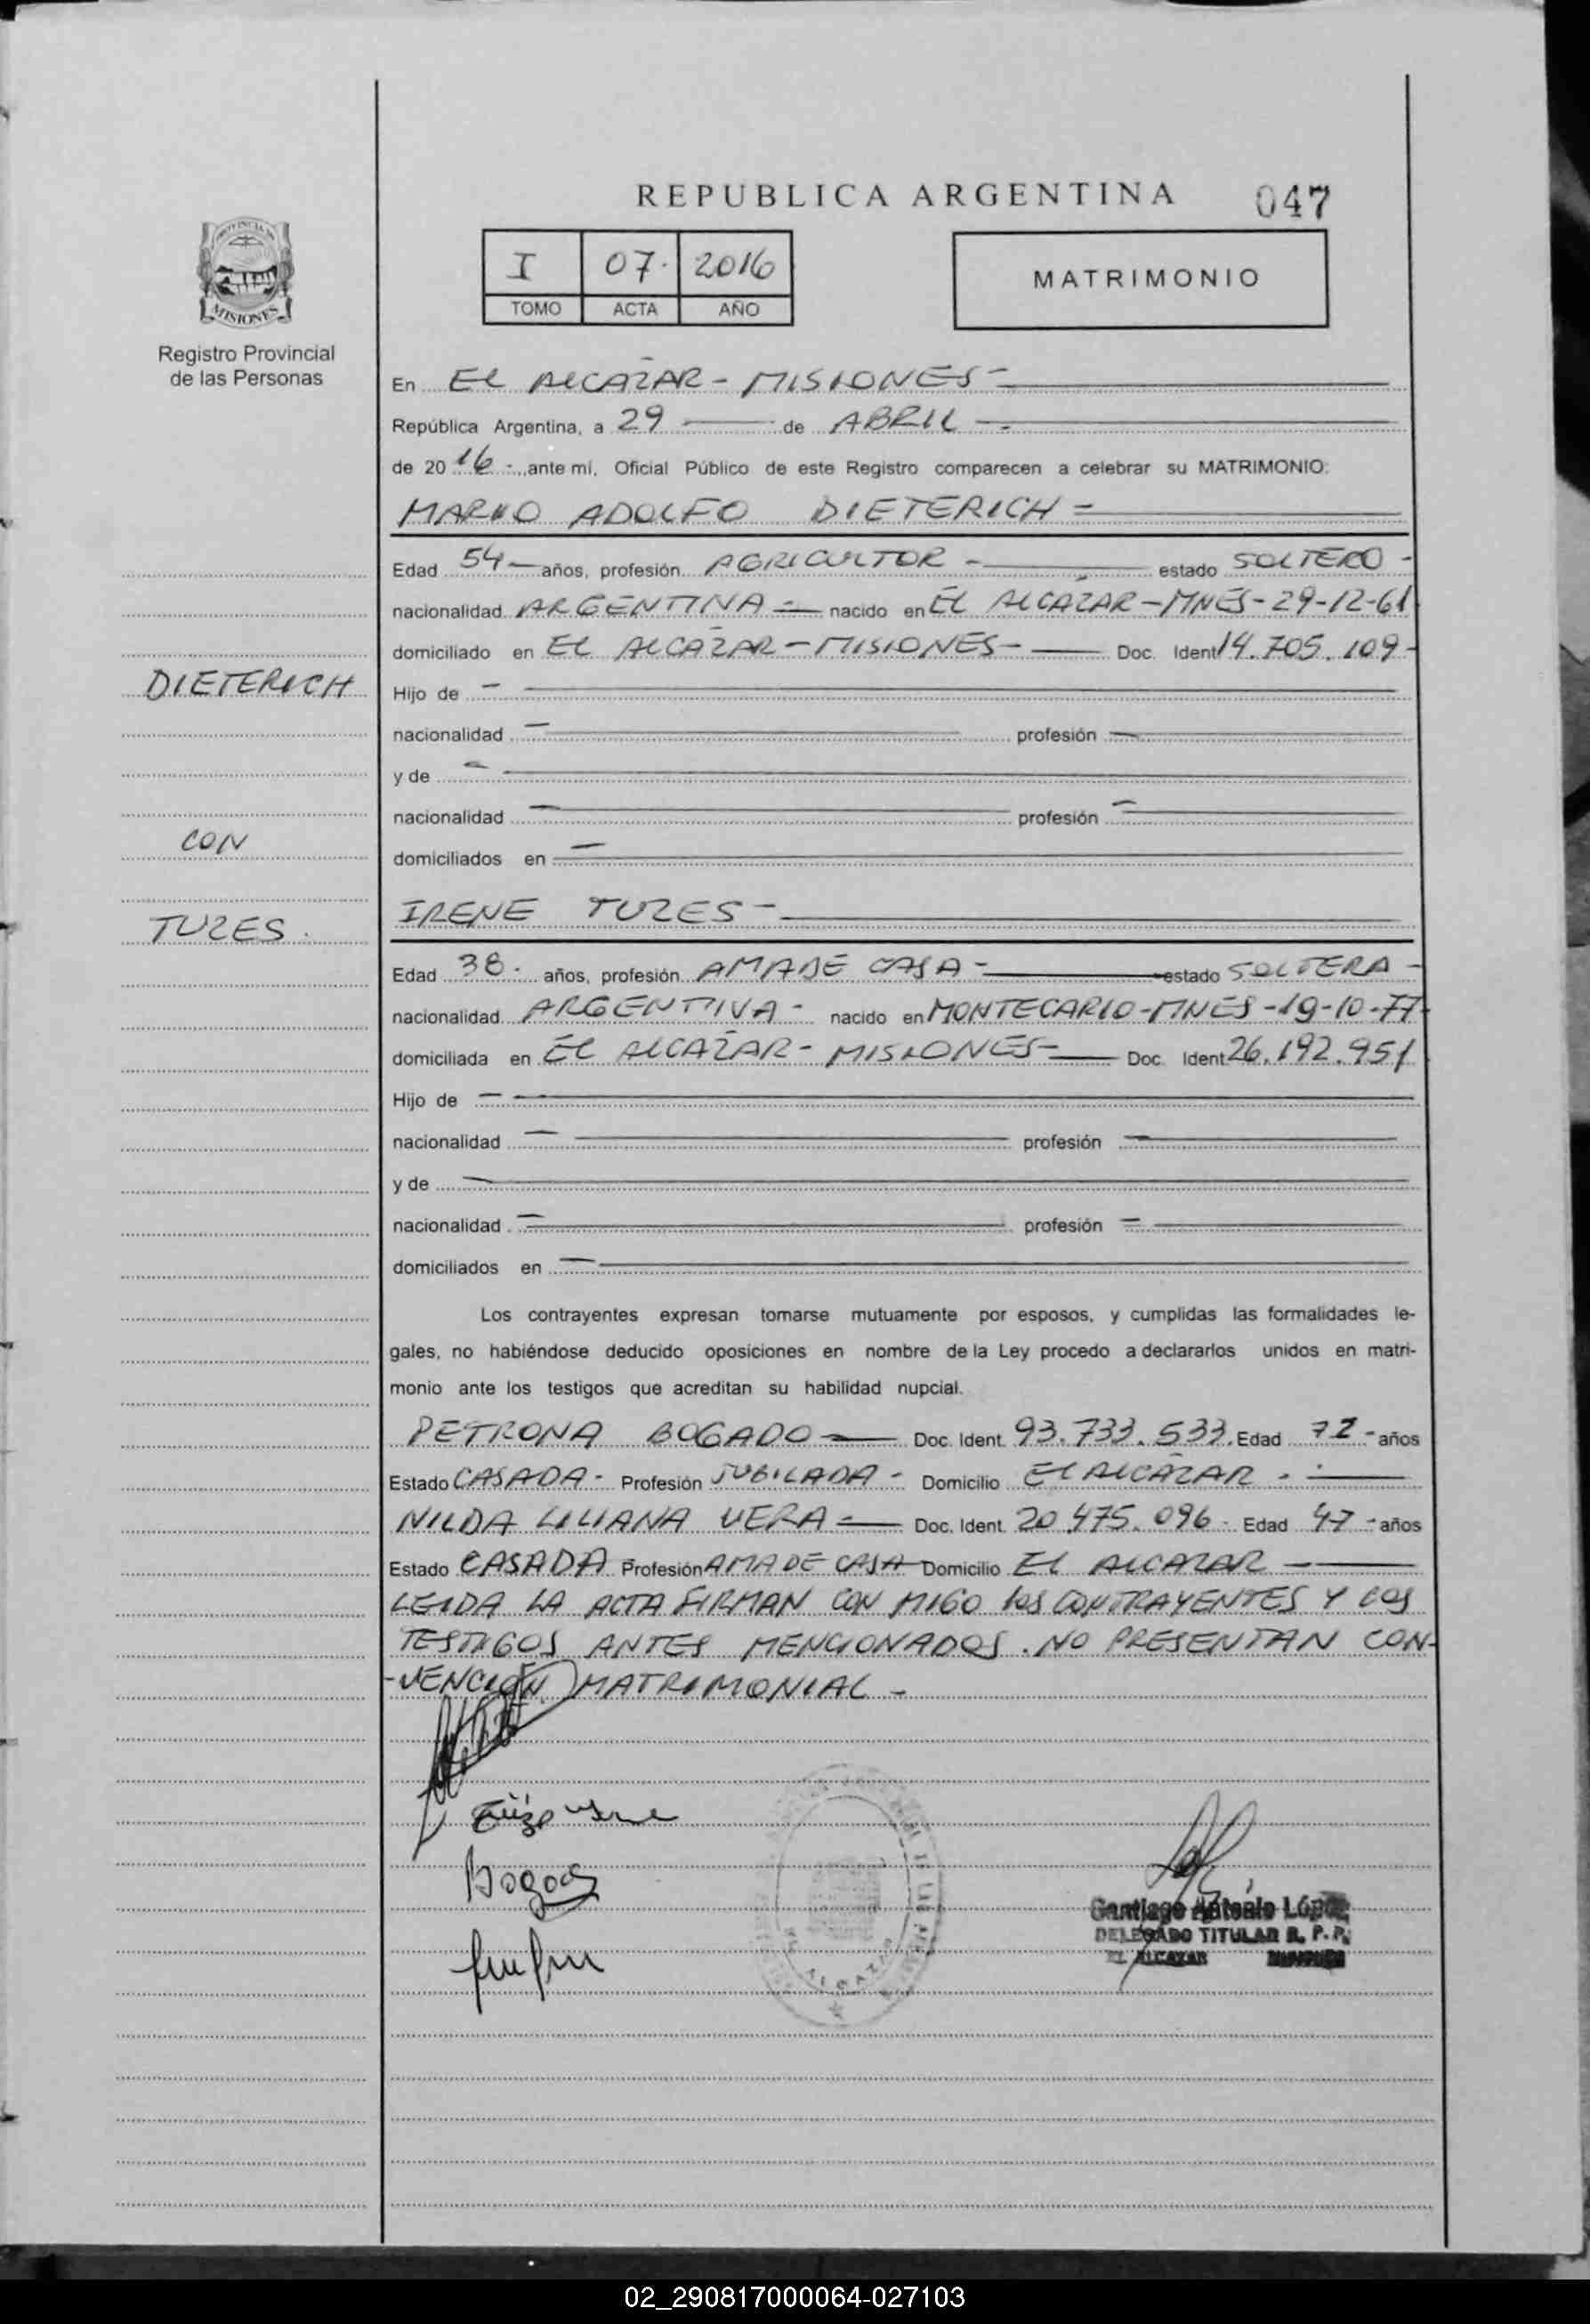 REPUBLICA ARGENTINA 047
I 07. 2016
TOMO ACTA AÑO
MATRIMONIO
MISIONES
Registro Provincial
de las Personas
En EL ALCAZAR - MISIONES -
República Argentina, a 29 de ABRIL -
de 20 16 - ante mi, Oficial Público de este Registro comparecen a celebrar su MATRIMONIO:
MARIO ADOLFO DIETERICH -
Edad 54 - años, profesión AGRICULTOR - estado SOLTERO -
nacionalidad ARGENTINA - nacido en EL ALCAZAR - MNES - 29-12-61
domiciliado en EL ALCAZAR - MISIONES - Doc. Ident 14.705.109 -
DIETERICH
Hijo de -
nacionalidad - profesión -
y de -
nacionalidad - profesión -
CON
domiciliados en -
TUZES.
IRENE TUZES -
Edad 38. años, profesión AMA DE CASA - estado SOLTERA -
nacionalidad ARGENTINA - nacido en MONTECARLO - MNES - 19-10-77.
domiciliada en EL ALCAZAR - MISIONES - Doc. Ident 26.192.951
Hijo de -
nacionalidad - profesión -
y de -
nacionalidad - profesión -
domiciliados en -
Los contrayentes expresan tomarse mutuamente por esposos, y cumplidas las formalidades le-
gales, no habiéndose deducido oposiciones en nombre de la Ley procedo a declararlos unidos en matri-
monio ante los testigos que acreditan su habilidad nupcial.
PETRONA BOGADO - Doc. Ident. 93.733.533. Edad 72 - años
Estado CASADA - Profesión JUBILADA - Domicilio EL ALCAZAR -
NILDA LILIANA VERA - Doc. Ident. 20.475.096 - Edad 47 - años
Estado CASADA Profesión AMA DE CASA Domicilio EL ALCAZAR -
LEIDA LA ACTA FIRMAN CON MIGO los CONTRAYENTES Y LOS
TESTIGOS ANTES MENCIONADOS. NO PRESENTAN CON-
-VENCIÓN MATRIMONIAL -
Santiago Antonio López
DELEGADO TITULAR R. P. P.
EL ALCAZAR MISIONES
02_290817000064-027103